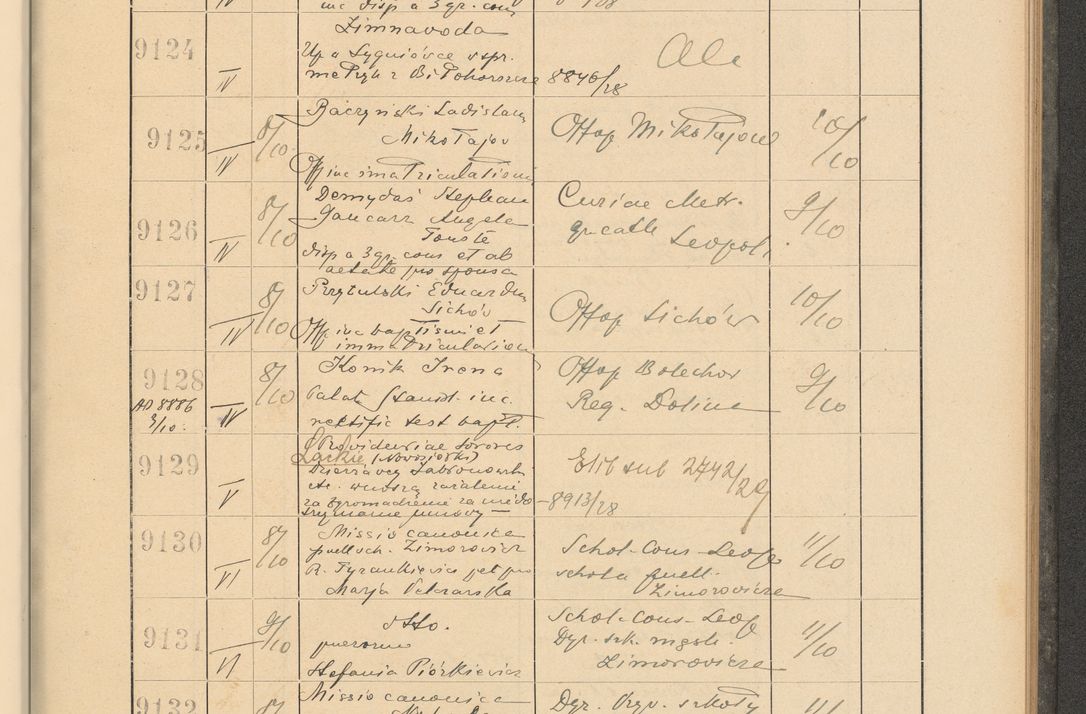 disp a 3 gr. cons
9124
IV
Zimnavoda
Up a Sygniówce
metryk z Białohorszcze
8846/28
9125
IV
8/10
Baczynski Ladislaus
Mikołajov
Off inc immatriculationis
Offop Mikołajow
10/10
9126
IV
8/10
Demydas Stephan
Gancarz Angela
Touste
disp a 3 gr. cons et ab
aetate pro sponsa
Curiae Metr.
gr cath
Leopoli
9/10
9127
IV
8/10
Przytulski Eduardus
Sichów
Off inc baptismi et
immatriculationis
Offop Sichów
10/10
9128
AD 8886
3/10.
IV
8/10
Konik Irena
Palat Stanisl. inc.
rectific test bapt.
Offop Bolechow
Reg. Dolina
9/10
9129
V
Providentiae Sorores
Lackie (Nowosiółki)
Dzierżawcy Jabłonowski
etc. wnoszą zażalenie
za zgromadzenie za niedo-
trzymanie umowy
Exib sub 2742/29
8913/28
9130
VI
8/10
Missio canonica
puell sch. Zimorovicz
R. Tyrankiewicz pet pro
Marja
Schol-Cons-Leop
schola puell.
Zimorovicza
11/10
9131
VI
9/10
dtto.
puerorum
Stefania Piórkiewicz
Schol-Cons-Leop
Dyr. szk. męsk
Zimorovicza
11/10
9132
Missio canonica
Dyr. szkoły